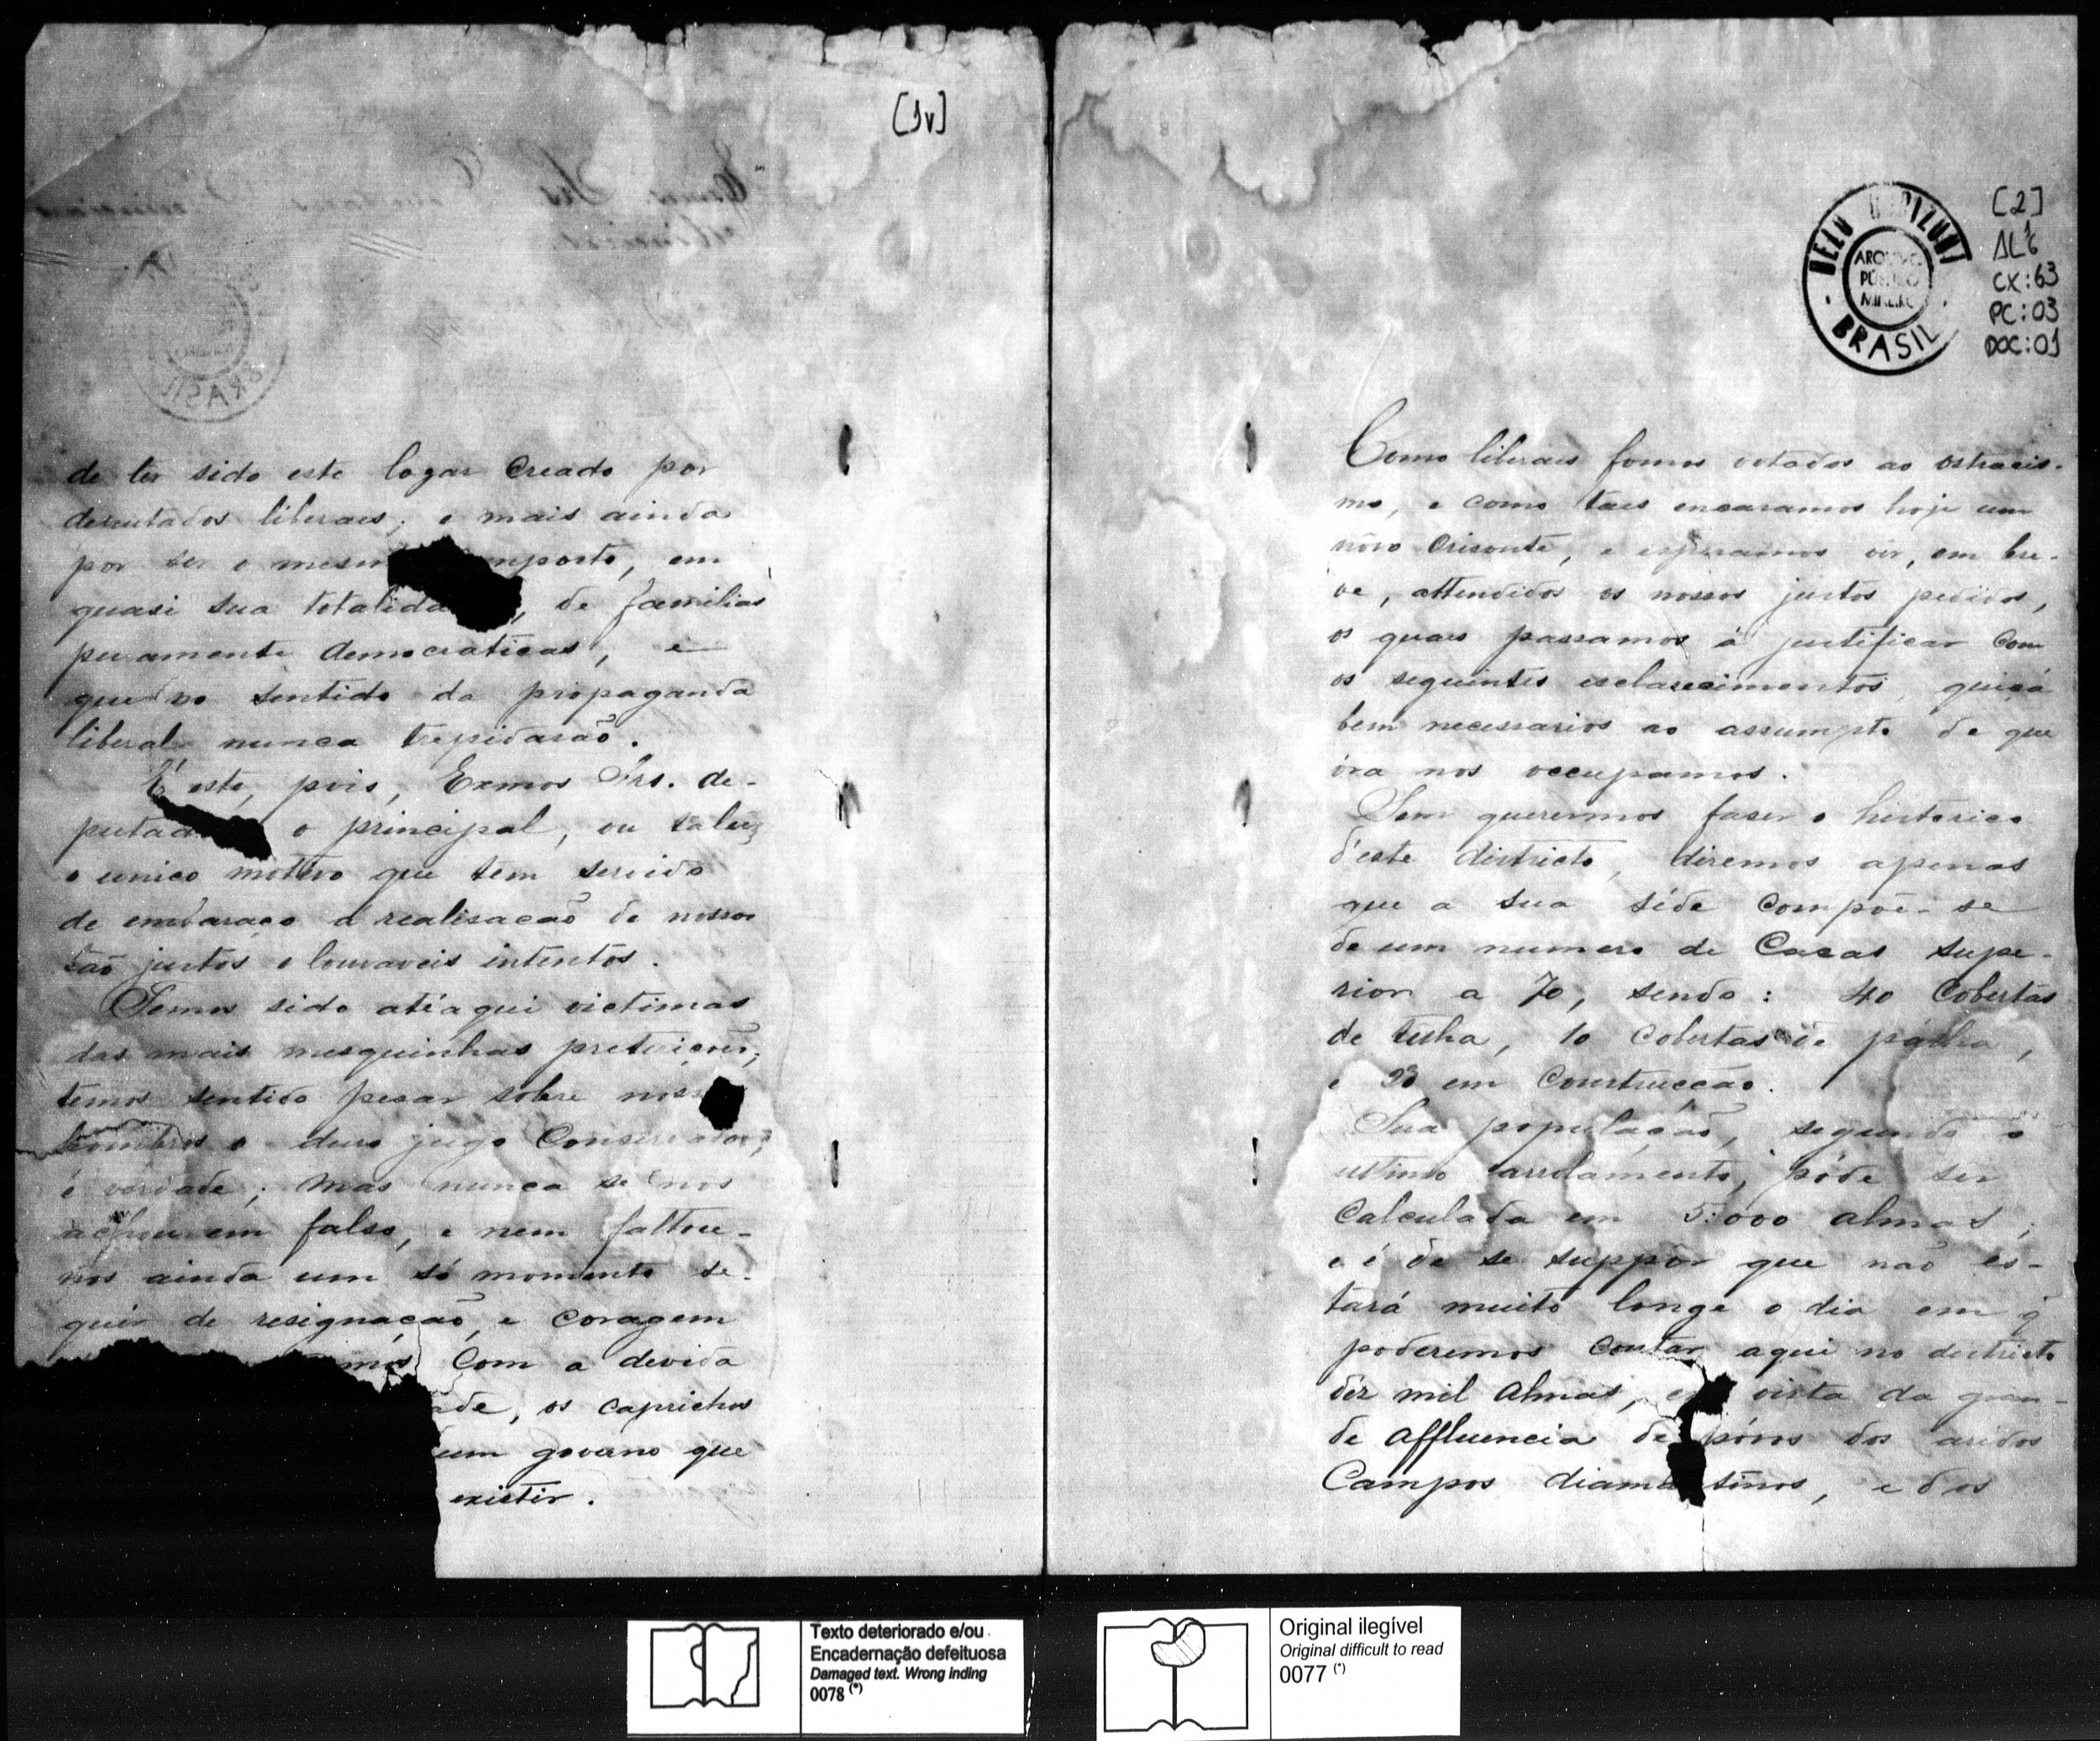 [1v]
de ter sido este logar Creado por
deputados liberaes; e mais ainda
por ser o mesm mposto, em
quasi sua totalida , de familias
puramente democraticas, e
que no sentido da propaganda
liberal nunca trepidarão.
É este, pois, Exmos Srs. de-
putad o principal, ou talvez
o unico motivo que tem servido
de embaraço a realisacão de nossos
tão justos e louvaveis intentos.
Temos sido até aqui victimas
das mais mesquinhas preteições;
temos sentido pesar sobre noss
hombros o duro jugo Conservador,
é verdade; mas nunca se nos
achou em falso, e nem faltou-
nos ainda um só momento se-
quér de resignação, e coragem
mos Com a devida
ade, os caprichos
um governo que
existir.
[2]
AL 1/6
CX:63
PC:03
DOC:01
BELO HORIZONTE
ARQUIVO
PÚBLICO
MINEIRO
BRASIL
Como liberaes fomos votados ao ostracis-
mo, e como taes encaramos hoje um
nôvo Orisonte, e esperamos ver, em bre-
ve, attendidos os nossos justos pedidos,
os quaes passamos á justificar Com
os seguintes esclarecimentos, quiçá
bem necessarios ao assumpto de que
óra nos occupamos.
Sem queremos faser o historico
d'este districto, diremos apenas
que a sua séde Compõe-se
de um numero de Casas supe-
rior a 70, sendo: 40 Cobertas
de telha, 10 Cobertas de pálha,
e 23 em Construcção.
Sua população, segundo o
ultimo arrolamento, póde ser
Calculada em 5:000 almas;
e é de se suppôr que não es-
tará muito longe o dia em q̃
poderemos Contar aqui no districto
déz mil Almas, e vista da gran-
de affluencia de póvos dos aridos
Campos diama tinos, e dos
Texto deteriorado e/ou
Encadernação defeituosa
Damaged text. Wrong inding
0078 (*)
Original ilegível
Original difficult to read
0077 (*)